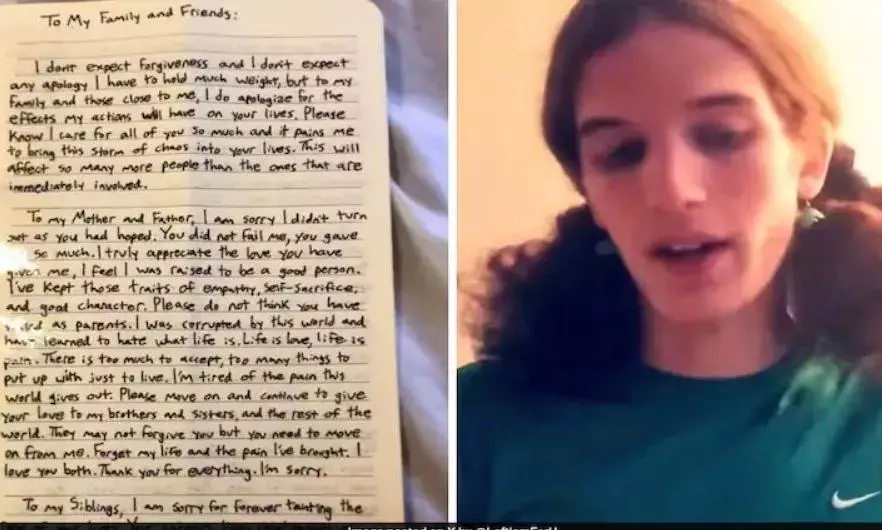 To My Family and Friends:
I don't expect forgiveness and I don't expect
any apology I have to hold much weight, but to my
family and those close to me, I do apologize for the
effects my actions will have on your lives. Please
know I care for all of you so much and it pains me
to bring this storm of chaos into your lives. This will
affect so many more people than the ones that are
immediately involved.
To my Mother and Father, I am sorry I didn't turn
out as you had hoped. You did not fail me, you gave
so much. I truly appreciate the love you have
given me, I feel I was raised to be a good person.
I've kept those traits of empathy, self-sacrifice,
and good character. Please do not think you have
as parents. I was corrupted by this world and
have learned to hate what life is. Life is love, life is
pain. There is too much to accept, too many things to
put up with just to live. I'm tired of the pain this
world gives out. Please move on and continue to give
your love to my brothers and sisters, and the rest of the
world. They may not forgive you but you need to move
on from me. Forget my life and the pain I've brought. I
love you both. Thank you for everything. I'm sorry.
To my Siblings, I am sorry for forever tainting the